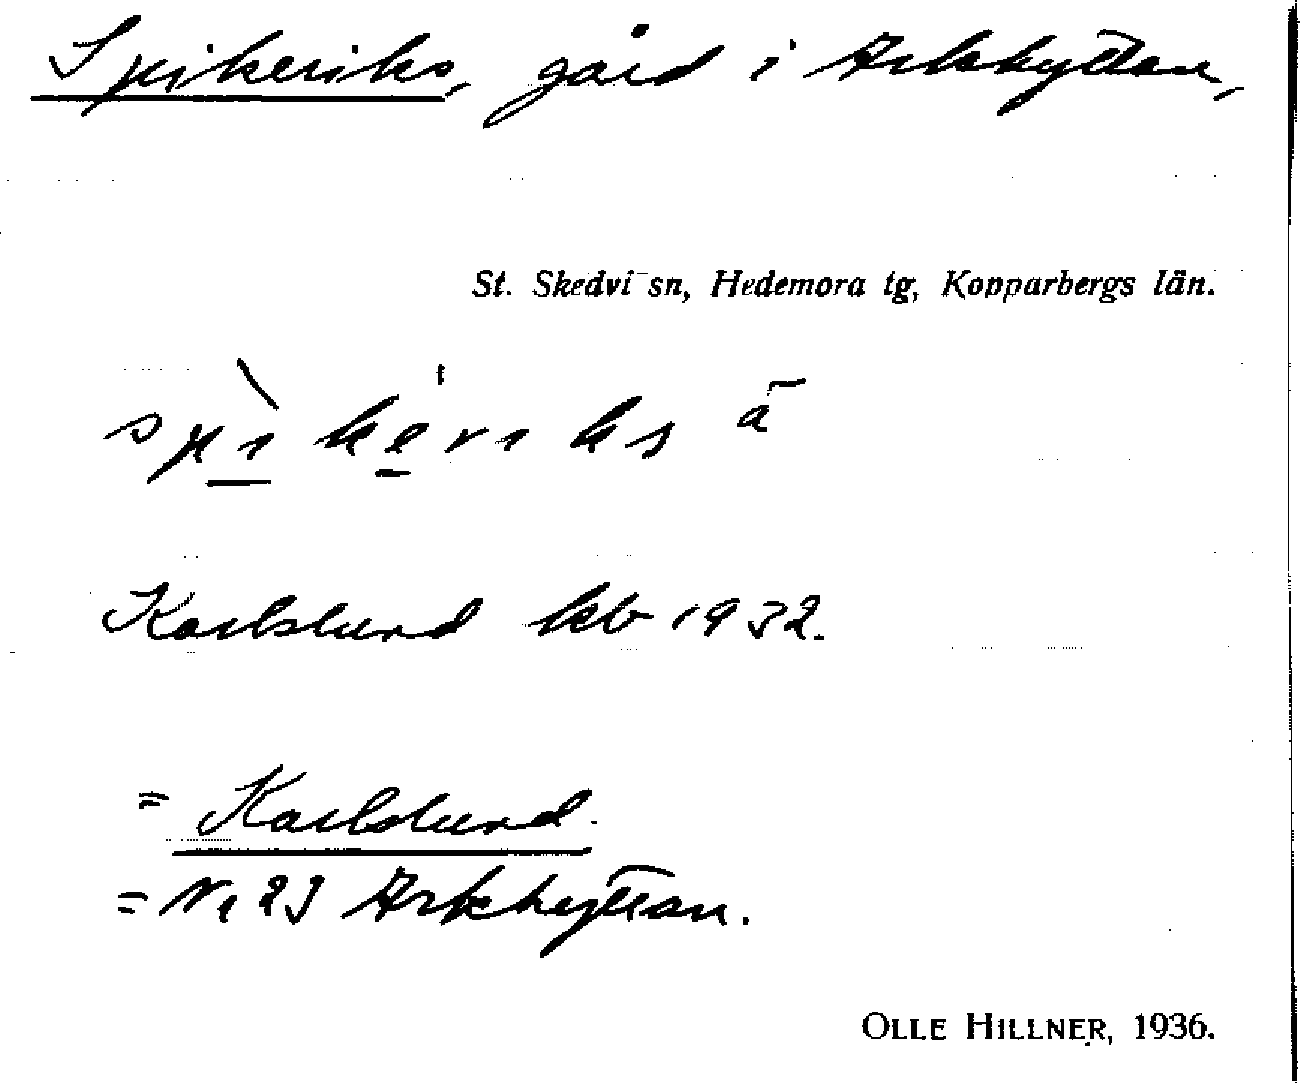 Spikeriks, gård i Arkhyttan,
St. Skedvi sn, Hedemora tg, Kopparbergs län.
spìkeriks ä
Karlslund kb 1932.
= Karlslund.
= Nr 23 Arkhyttan.
OLLE HILLNER, 1936.